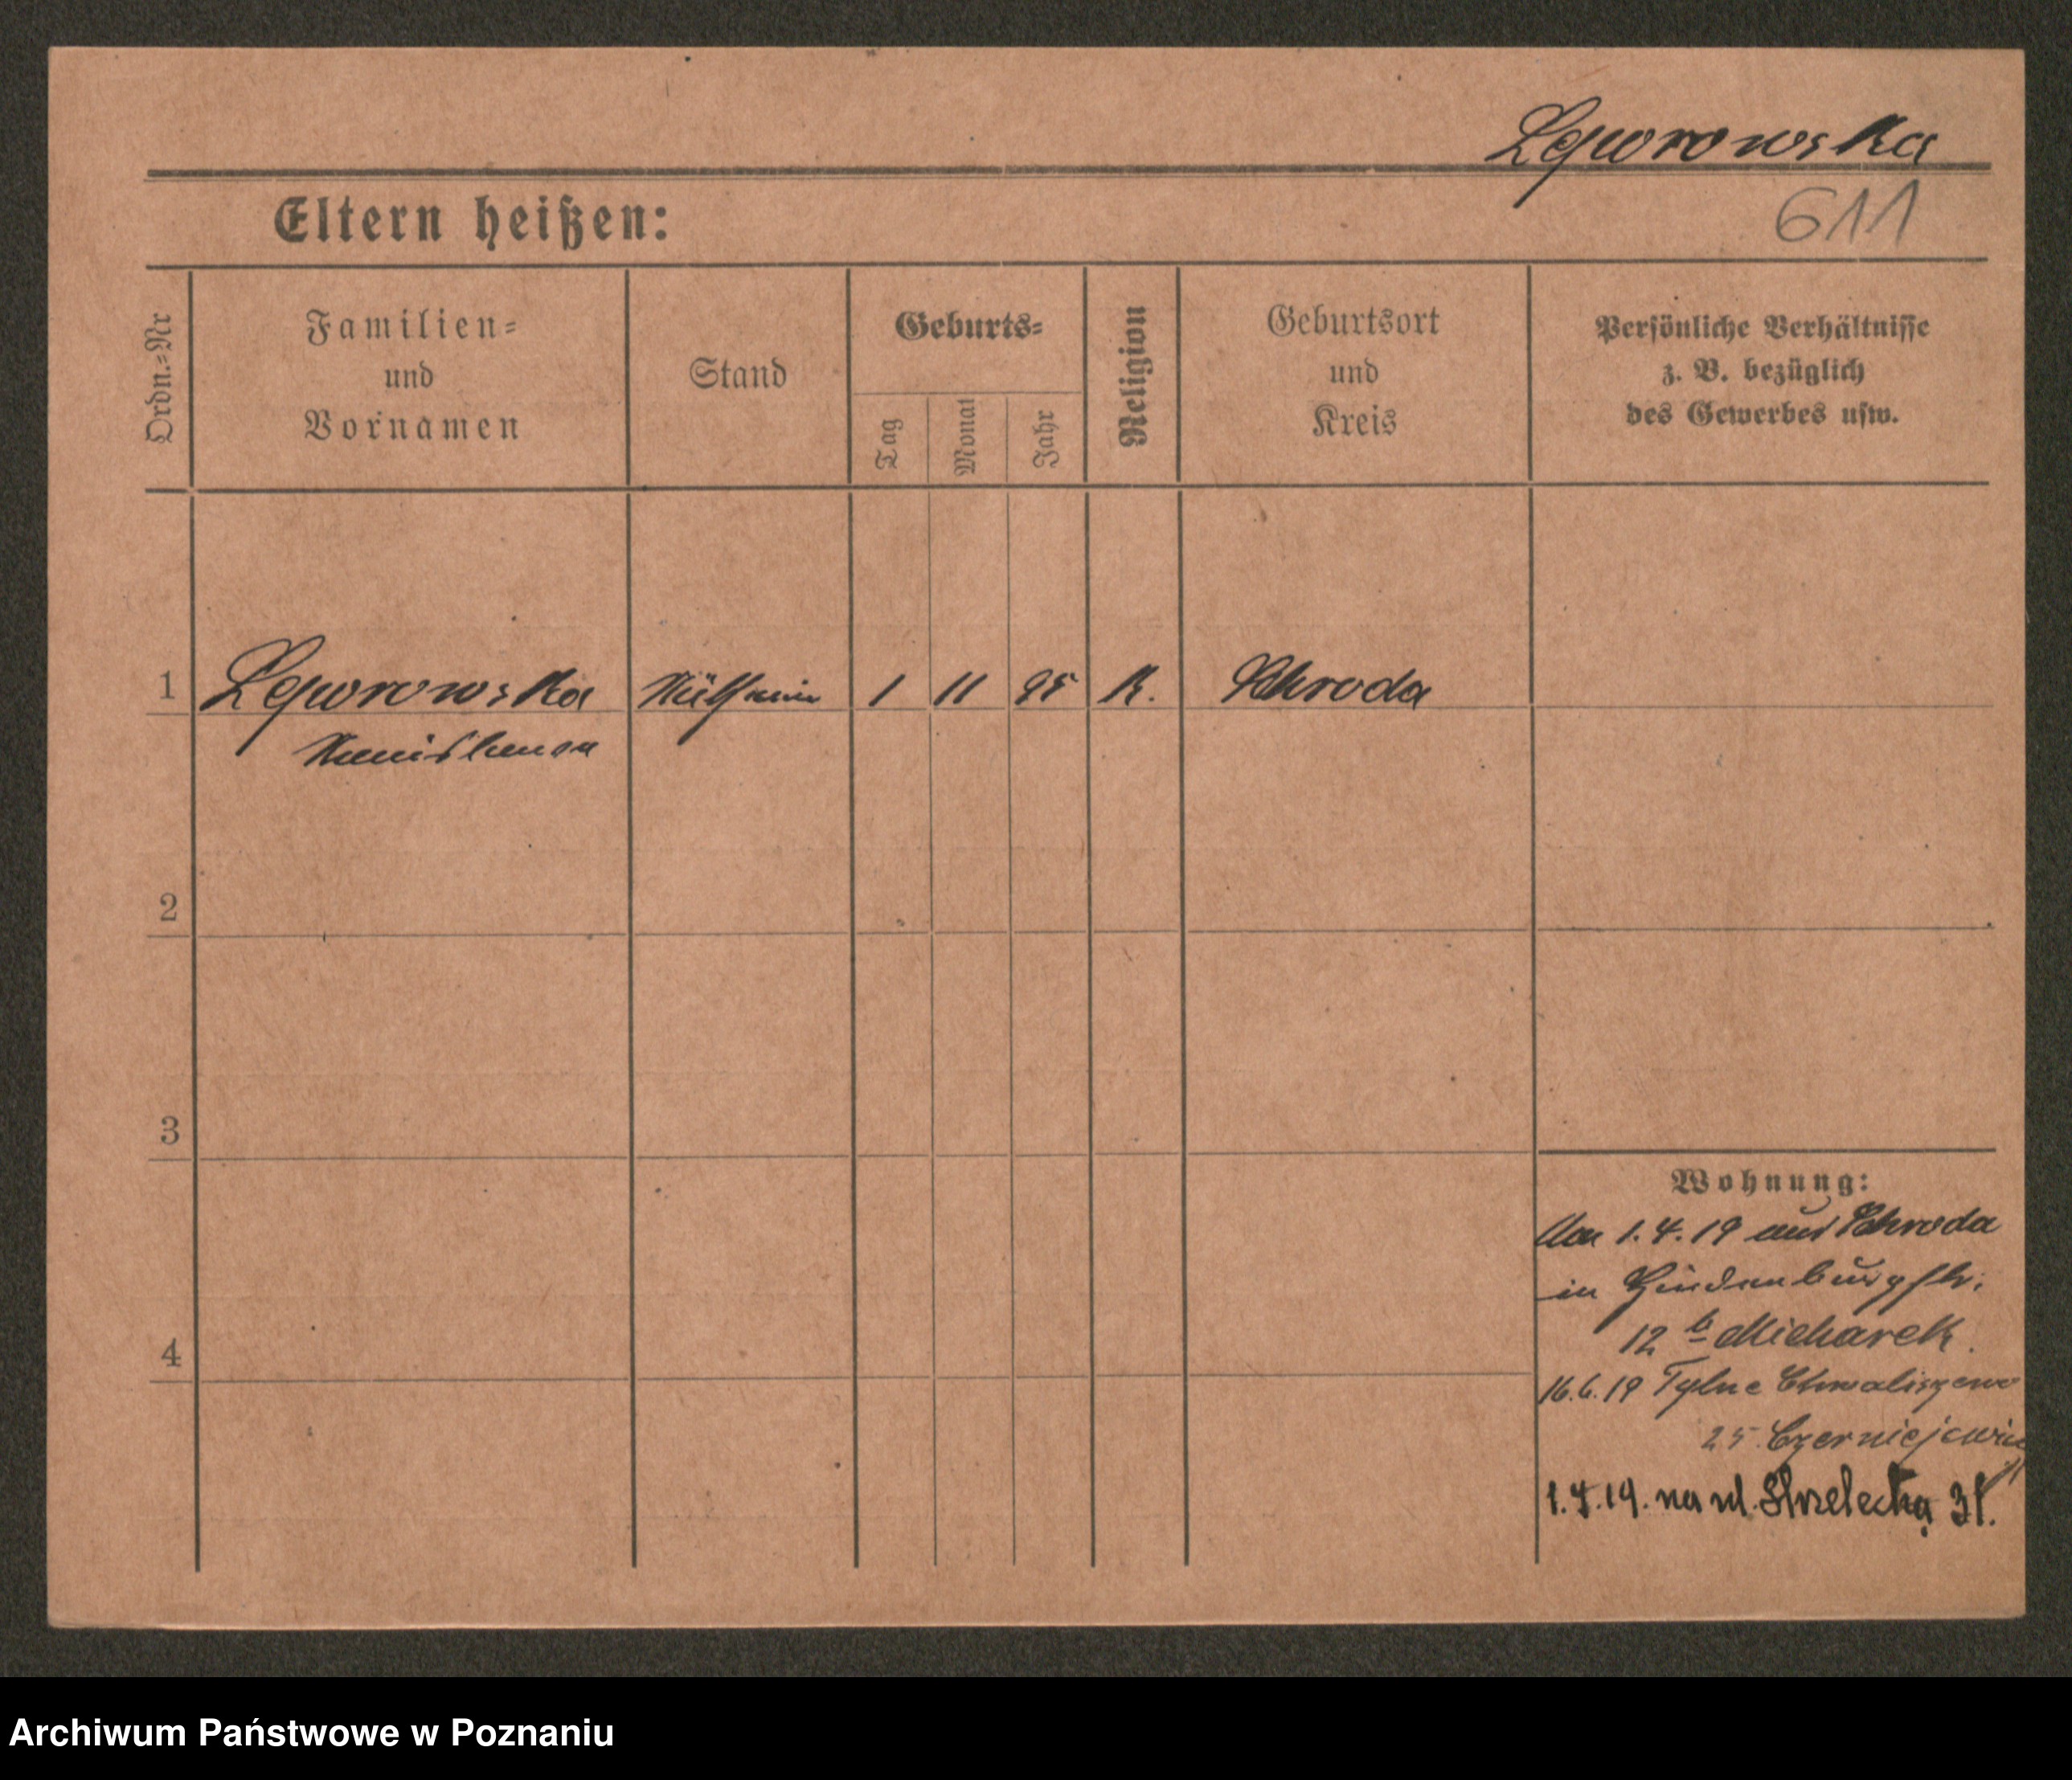 Leporowska
611
Eltern heißen:
Ordn.=Nr
Familien=
und
Vornamen
Stand
Geburts=
Tag
Monat
Jahr
Religion
Geburtsort
und
Kreis
Persönliche Verhältnisse
z. B. bezüglich
des Gewerbes usw.
1 Leporowska 1 11 95 K. Schroda
2
3
4
Wohnung:
1.4.19 aus Schroda
in Hindenburgstr.
12 b Micharek.
16.6.19 Tylne Chwaliszewo
25
1.7.19. na ul. Strzelecką 31.
Archiwum Państwowe w Poznaniu